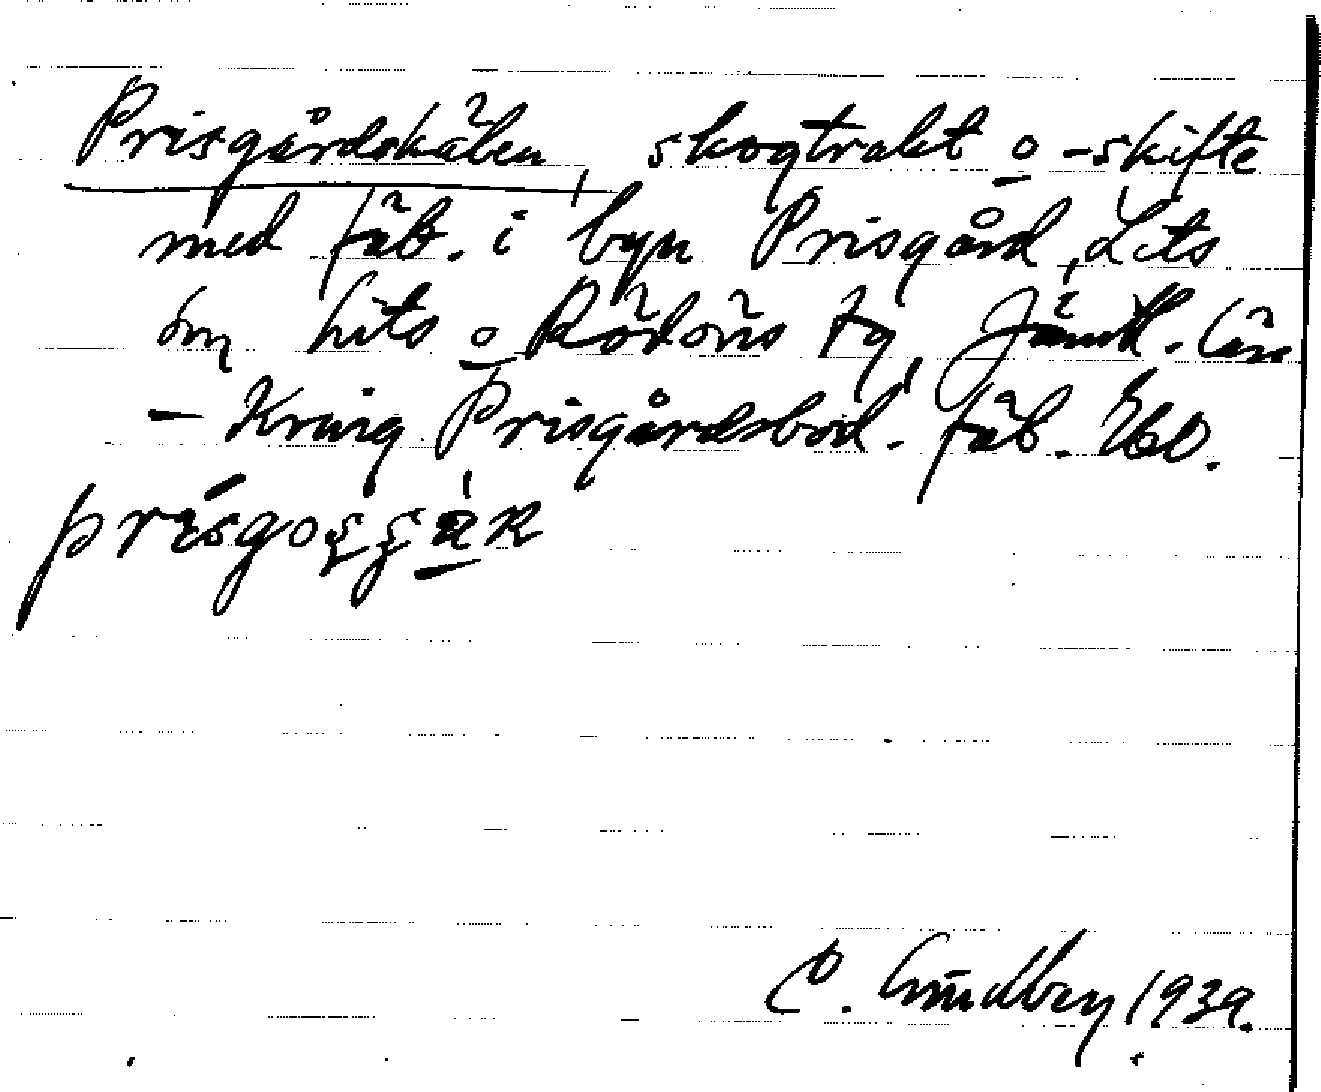 Prisgårdskälen, skogtrakt o -skifte
med fäb. i byn Prisgård, Lits
sn, Lits o Rödöns tg, Jämtl. län
– Kring Prisgårdsbod. fäb.
O. Lundberg 1939.